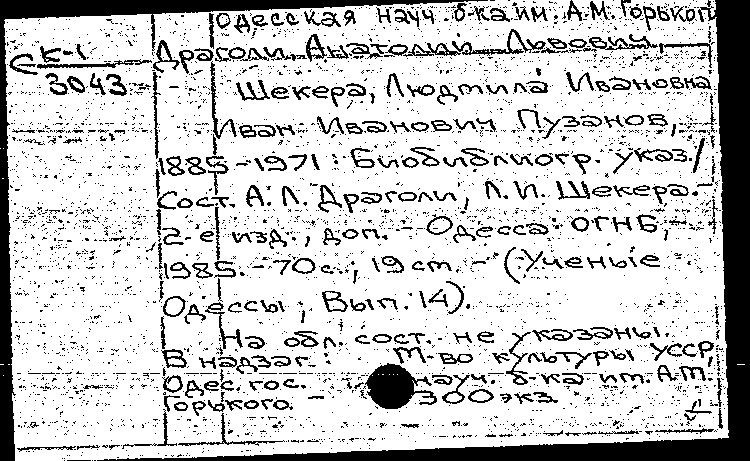 Одесская науч. б-ка им. А.М. Горького
К-1
3043
Драголи, Анатолий Львович,
Шекера, Людмила Ивановна
Иван Иванович Пузанов,
1885-1971 : Биобиблиогр. указ./
Сост. А. Л. Драголи, Л. И. Шекера. -
2-е изд., доп. - Одесса: ОГНБ, -
1985. - 70 с.; 19 см. - (Ученые
Одессы ; Вып. 14).
На обл. сост. не указаны.
В надзаг.: М-во культуры УССР,
Одес. гос. науч. б-ка им. А.М.
Горького. - 300 экз.